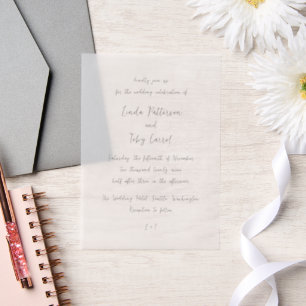 kindly join us
for the wedding celebration of
Linda Patterson
and
Toby Carrol
Saturday, the fifteenth of November
two thousand twenty nine
half after three in the afternoon
The Wedding Hotel, Seattle, Washington
Reception to follow